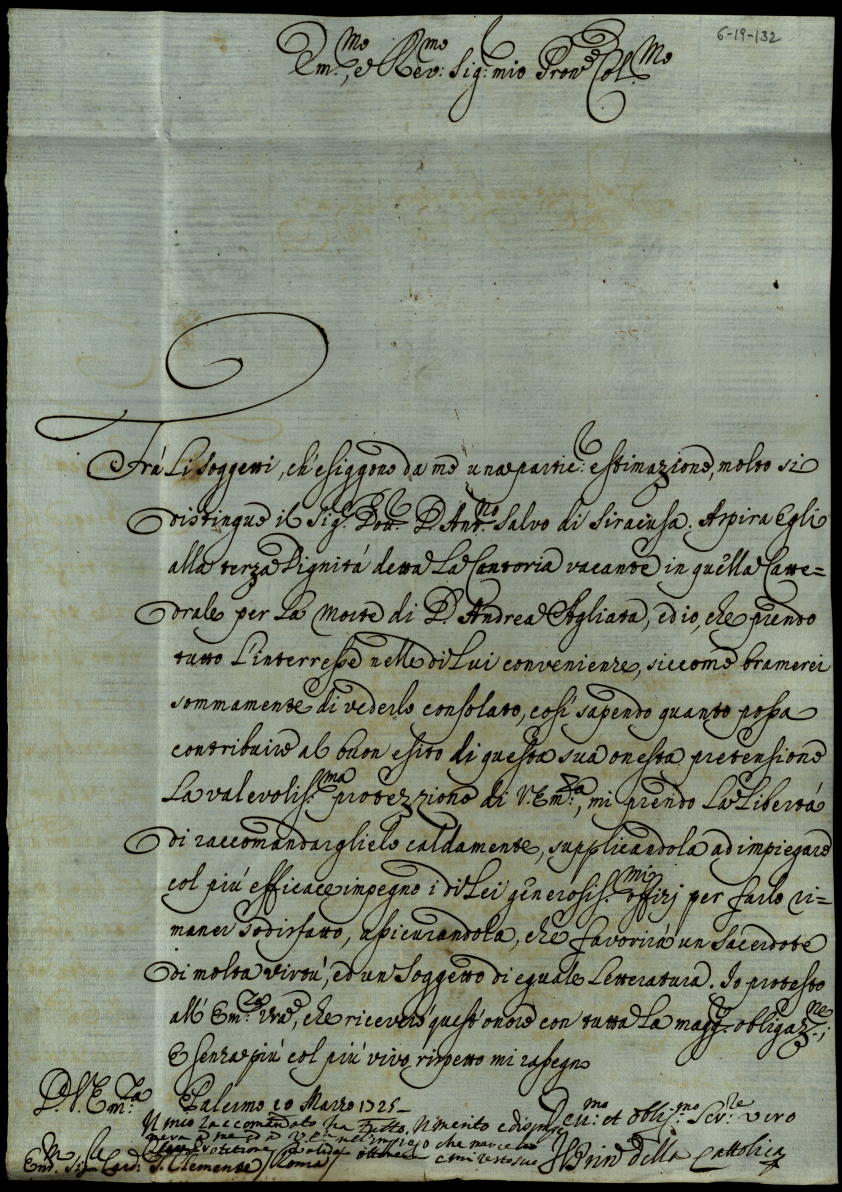 6-19-132
Em.mo, e Rev.mo Sig: mio Pron.e Col.mo
Frà Li Soggetti, ch'esiggono da me una partic: estimazione, molto si
distingue il Sig.r Dott.r D. Ant.no Salvo di Siracusa. Aspira Egli
alla terza Dignità detta La Cantoria vacante in quella Catte=
drale per La morte di D. Andrea Agliata, ed io, che prendo
tutto L'interresse nelle di Lui convenienze, siccome bramerei
sommamente di vederlo consolato, così sapendo quanto possa
contribuire al buon esito di questa sua onesta pretensione
La valevolis.ma protezzione di V. Em.za, mi prendo La Libertà
di raccomandarglielo caldamente, supplicandola ad impiegare
col più efficace impegno i di Lei generosis.mi offizj per farlo ri=
maner sodisfatto, assicurandola, che favorirà un Sacerdote
di molta virtù, ed un Soggetto di eguale Letteratura. Io protesto
all' Em.za Vra, che riceverò quest'onore con tutta La magg.r obligaz.ne;
E senza più col più vivo rispetto mi rassegno
D. V. Em.za Palermo 10 Marzo 1725
Il mio raccomandato ha
Dev.mo et oblig.mo Ser.re vero
Em.mo Sig. Card. S. Clemente / Roma
Il Prin.e della Cattolica